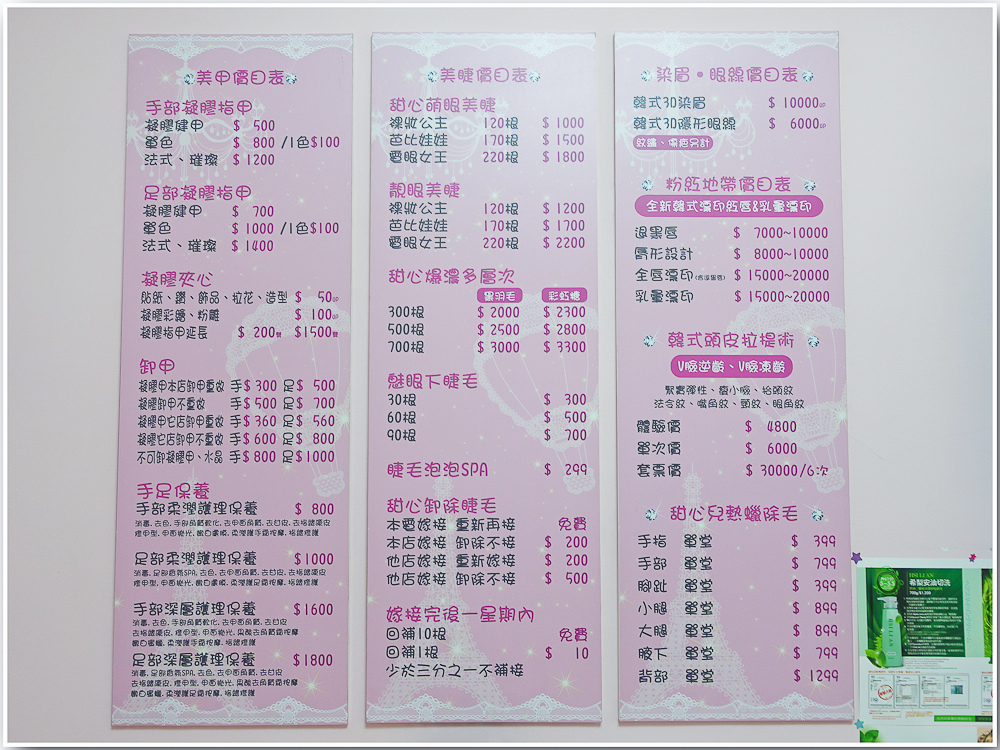 美甲價目表
手部凝膠指甲
凝膠健甲 $ 500
單色 $ 800 /1色$100
法式、璀璨 $1200
足部凝膠指甲
凝膠健甲 $ 700
單色 $ 1000 /1色$100
法式、璀璨 $ 1400
凝膠夾心
貼紙、鑽、飾品、拉花、造型 $ 50up
凝膠彩繪、粉雕 $ 100up
凝膠指甲延長 $ 200隻 $1500雙
卸甲
凝膠甲本店卸甲重做 手$ 300 足$ 500
凝膠卸甲不重做 手$ 500 足$ 700
凝膠它店卸甲重做 手$ 360 足$ 560
凝膠它店卸甲不重做 手$ 600 足$ 800
不可卸凝膠甲、水晶 手$ 800 足$1000
手足保養
手部柔潤護理保養 $ 800
消毒、去色、手部角質軟化、去甲面角質、去甘皮、去指緣硬皮
修甲型、甲面拋光、嫩白蜜蠟、柔潤護手霜按摩、指緣修護
足部柔潤護理保養 $1000
手部深層護理保養 $1600
消毒、去色、手部角質軟化、去甲面角質、去甘皮
足部深層護理保養 $1800
美睫價目表
甜心萌眼美睫
裸妝公主 120根 $ 1000
芭比娃娃 170根 $ 1500
電眼女王 220根 $ 1800
靚眼美睫
裸妝公主 120根 $ 1200
芭比娃娃 170根 $ 1700
電眼女王 220根 $ 2200
甜心爆濃多層次
黑羽毛 彩虹糖
300根 $ 2000 $ 2300
500根 $ 2500 $ 2800
700根 $ 3000 $ 3300
魅眼下睫毛
30根 $ 300
60根 $ 500
90根 $ 700
睫毛泡泡SPA $ 299
甜心卸除睫毛
本店嫁接 重新再接 免費
本店嫁接 卸除不接 $ 200
他店嫁接 重新嫁接 $ 200
他店嫁接 卸除不接 $ 500
嫁接完後一星期內
回補10根 免費
回補1根 $ 10
少於三分之一不補接
染眉•眼線價目表
韓式3D染眉 $ 10000up
韓式3D隱形眼線 $ 6000up
紋繡、傷疤另計
粉紅地帶價目表
全新韓式漂印紅唇&乳暈漂印
退黑唇 $ 7000~10000
唇形設計 $ 8000~10000
全唇漂印(含退黑唇) $ 15000~20000
乳暈漂印 $ 15000~20000
韓式頭皮拉提術
V臉逆齡、V臉凍齡
緊實彈性、瘦小臉、抬頭紋
法令紋、嘴角紋、頸紋、眼角紋
體驗價 $ 4800
單次價 $ 6000
套票價 $ 30000/6次
甜心兒熱蠟除毛
手指 單堂 $ 399
手部 單堂 $ 799
腳趾 單堂 $ 399
小腿 單堂 $ 899
大腿 單堂 $ 899
腋下 單堂 $ 799
背部 單堂 $ 1299